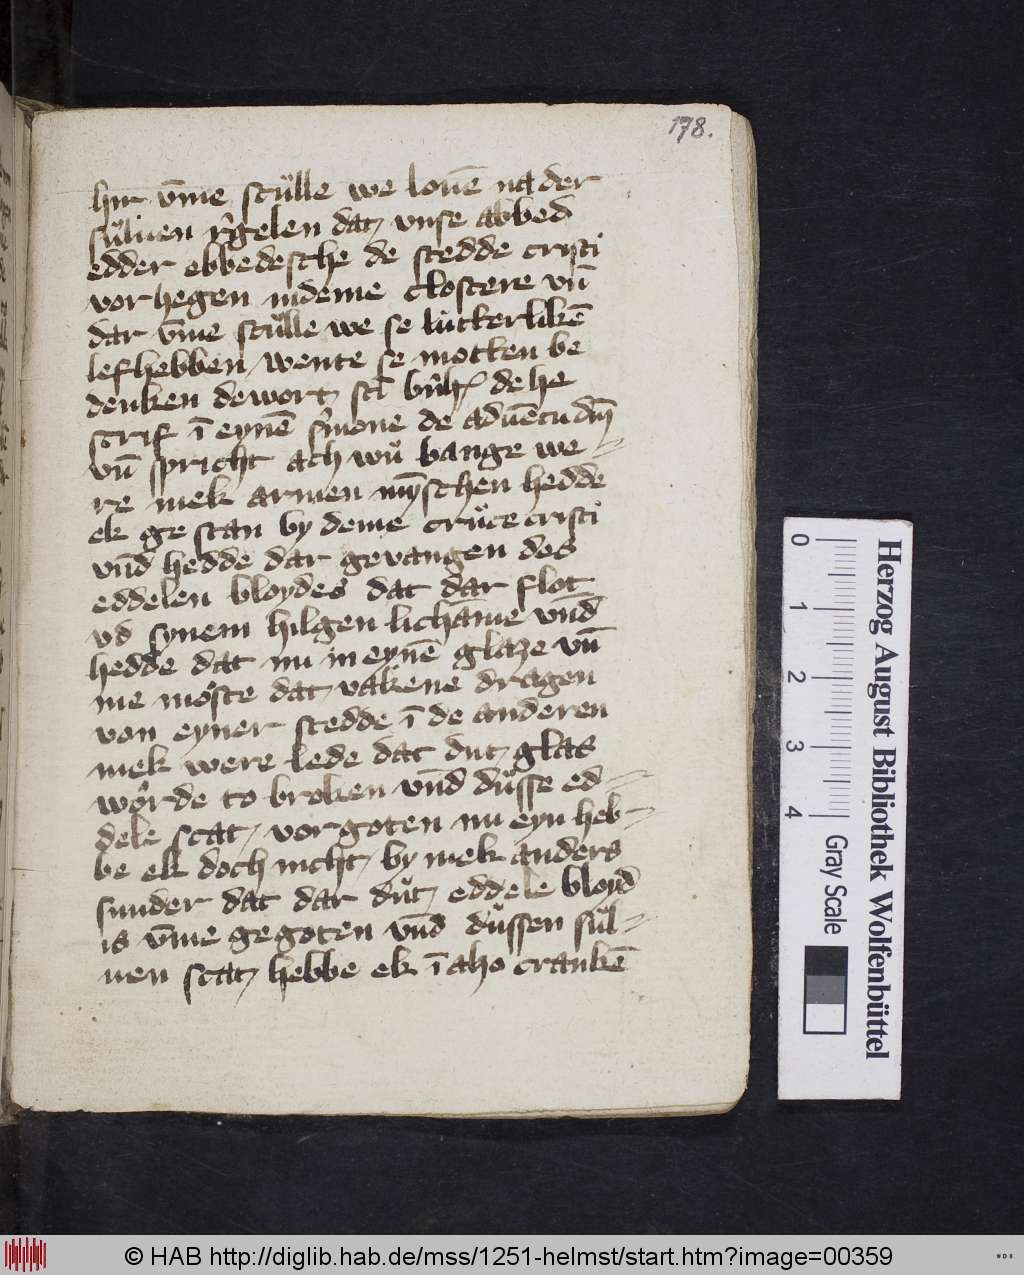 178.
hir v̄me scůlle we louē na der
sůluen rēgelen dat vnse abbed
edder ebbedesche de stedde cristi
vorhegen in deme clostere vn̄
dar v̄me scůlle we se lutterlikē
lef hebben wente se motten be
denken de wort sc̄i de he
scrif ī eynē sermone de aduētu dn̄i
vn̄ spricht ach wů bange we=
re mek armen mȳschen hedde
ek ge stan by deme crůce cristi
vn̄d hedde dar gevangen des
eddelen bloydes dat dar flot
vd synem hilgen lichāme vn̄d
hedde dat nu in eynē glaze vn̄
me moste dat vakene dragen
van eyner stedde ī de anderen
mek were lede dat dut glas
wörde to broken vn̄d důsse ed=
dele scat vorgoten nu eyn heb=
be ek doch nicht by mek anders
sunder dat dar důt eddele bloyd
is v̄me gegoten vn̄d důssen sůl=
uen scat hebbe ek ī aho crankē
Herzog August Bibliothek Wolfenbüttel
0 1 2 3 4 Gray Scale
© HAB http://diglib.hab.de/mss/1251-helmst/start.htm?image=00359